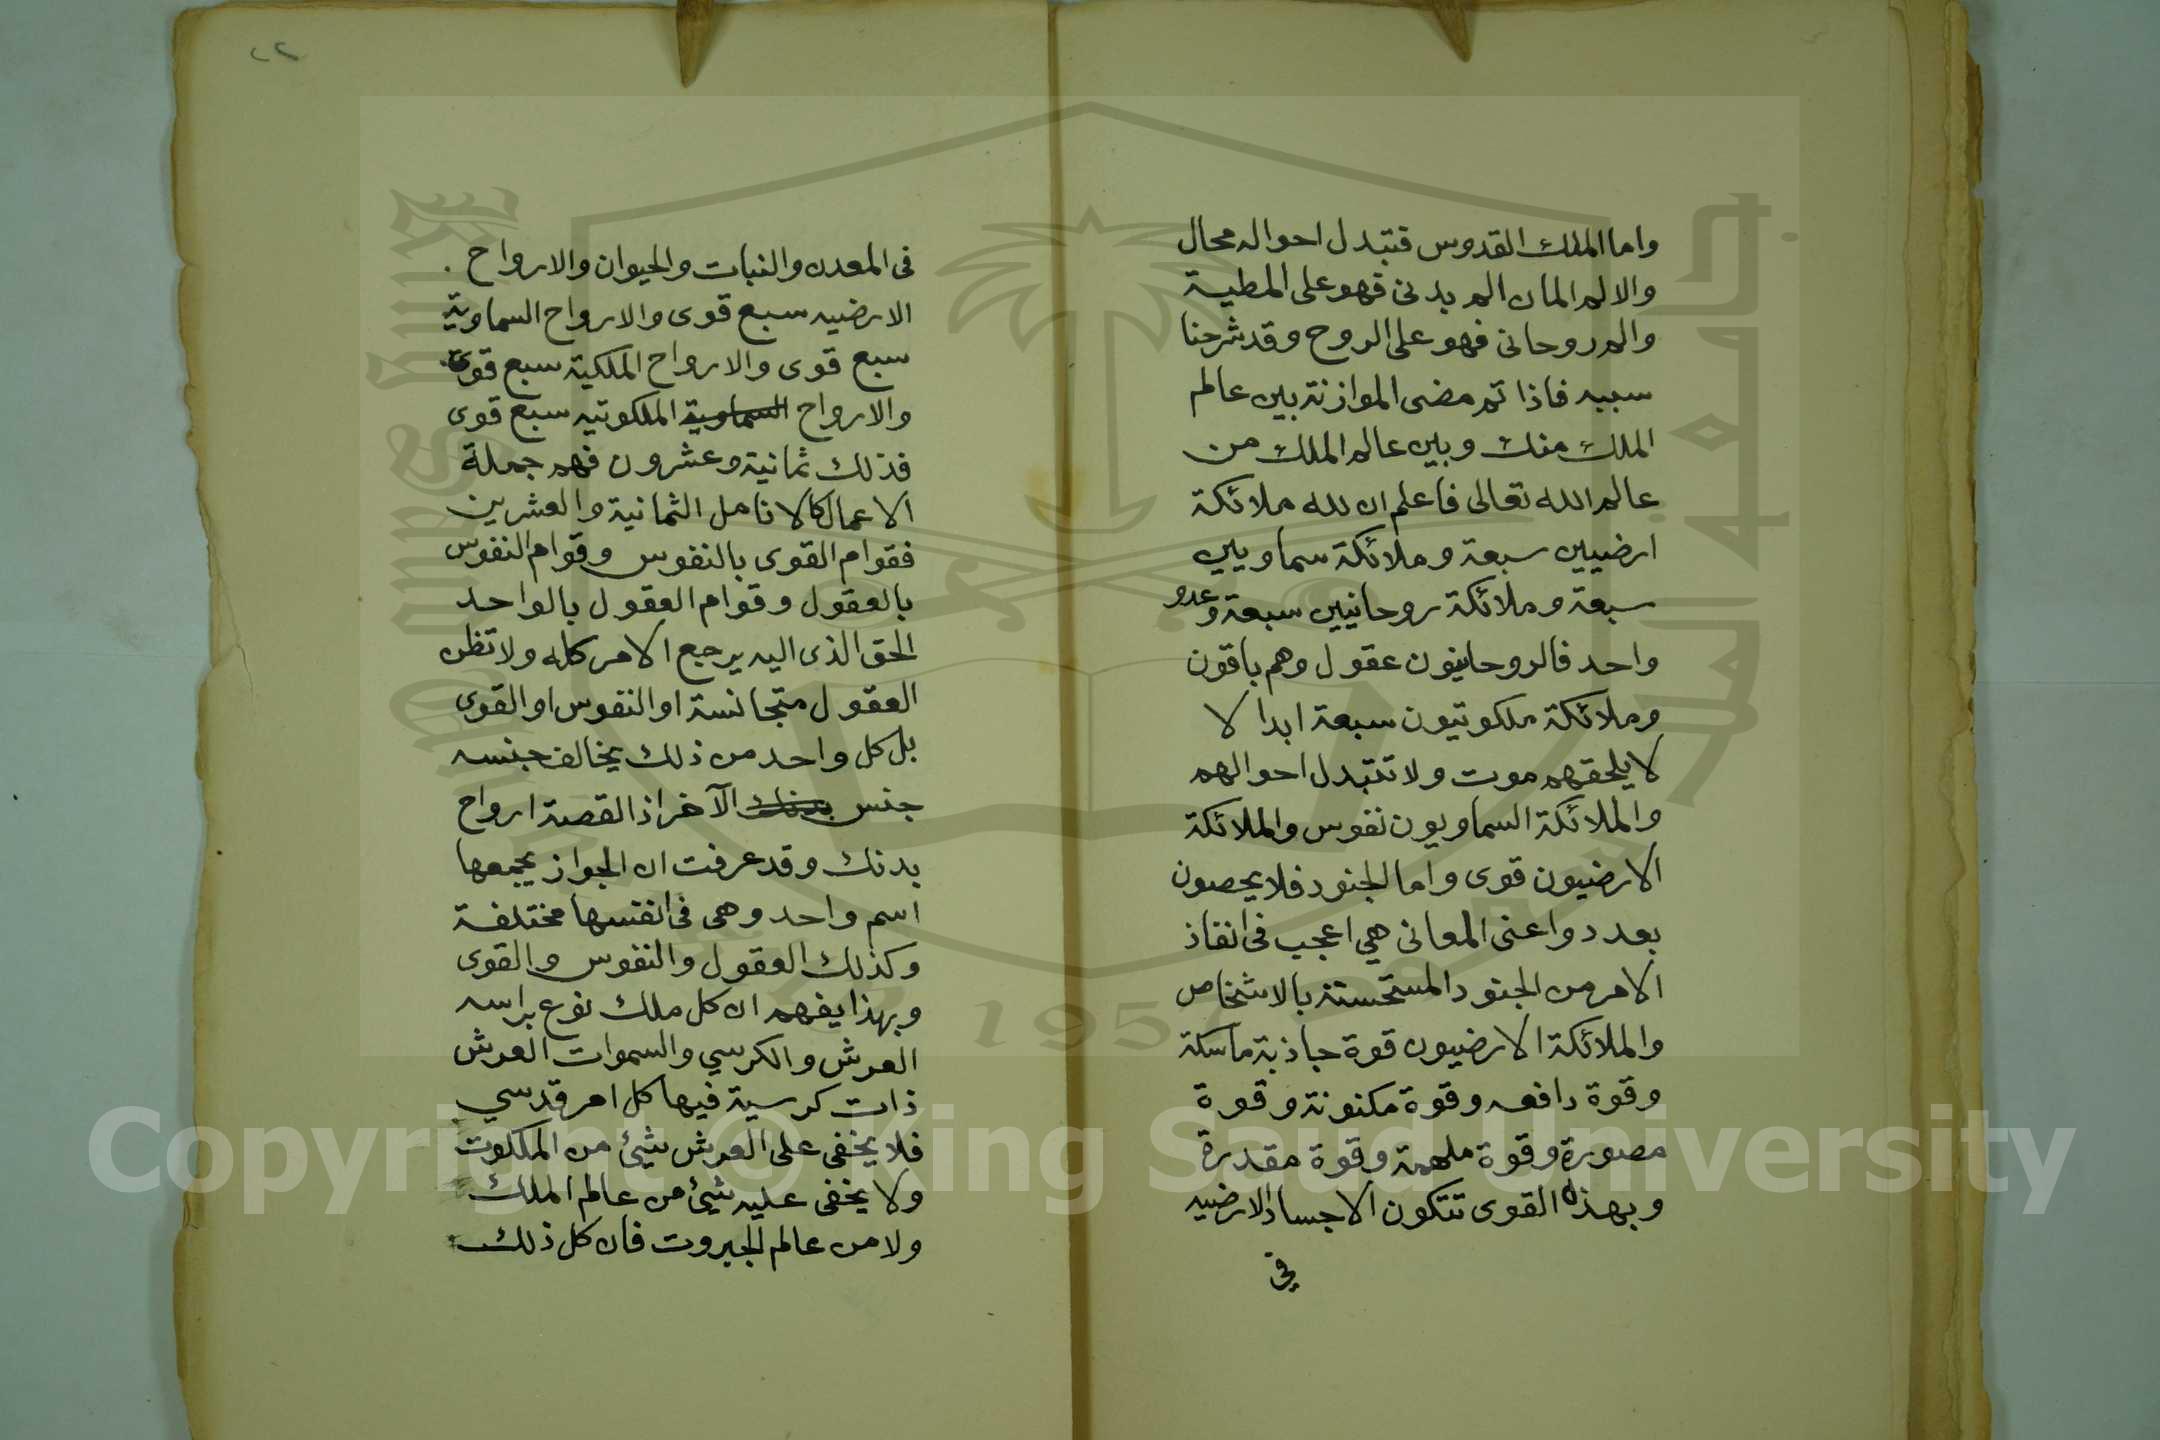 واما الملك القدوس فتبدل احواله محال
والالم المان الم بدنى فهو على المطية
والم روحانى فهو على الروح وقد شرحنا
سببه فاذا تم مضى الموازنة بين عالم
الملك منك وبين عالم الملك من
عالم الله تعالى فاعلم ان لله ملائكة
ارضيين سبعة وملائكة سماويين
سبعة وملائكة روحانيين سبعة وعدو
واحد فالروحانيون عقول وهم باقون
وملائكة ملكوتيون سبعة ابدا لا
لا يلحقهم موت ولا تتبدل احوالهم
والملائكة السماويون نفوس والملائكة
الارضيون قوى واما الجنود فلا يحصون
بعدد واعنى المعانى هي اعجب فى انفاذ
الامر من الجنود المستحسنة بالاشخاص
والملائكة الارضيون قوة جاذبة ماسكة
وقوة دافعه وقوة مكنونة وقوة
مصورة وقوة ملهمة وقوة مقدرة
وبهذه القوى تتكون الاجساد الارضيه
في
٢٢
فى المعدن والنبات والحيوان والارواح
الارضيه سبع قوى والارواح السماوية
سبع قوى والارواح الملكية سبع قوى
والارواح السماوية الملكوتيه سبع قوى
فذلك ثمانية وعشرون فهم جملة
الاعمال كالانامل الثمانية والعشرين
فقوام القوى بالنفوس وقوام النفوس
بالعقول وقوام العقول بالواحد
الحق الذى اليه يرجع الامر كله ولا تظن
العقول متجانسة او النفوس او القوى
بل كل واحد من ذلك يخالف جنسه
جنس بدنك الآخر اذ القصة ارواح
بدنك وقد عرفت ان الجواز يجمعها
اسم واحد وهى فى انفسها مختلفة
وكذلك العقول والنفوس والقوى
وبهذا يفهم ان كل ملك نوع براسه
العرش والكرسي والسموات العرش
ذات كرسية فيها كل امر قدسي
فلا يخفى على العرش شيئ من الملكوت
ولا يخفى عليه شيئ من عالم الملك
ولا من عالم الجبروت فان كل ذلك
جامعة الملك سعود
King Saud University
1957
Copyright © King Saud University